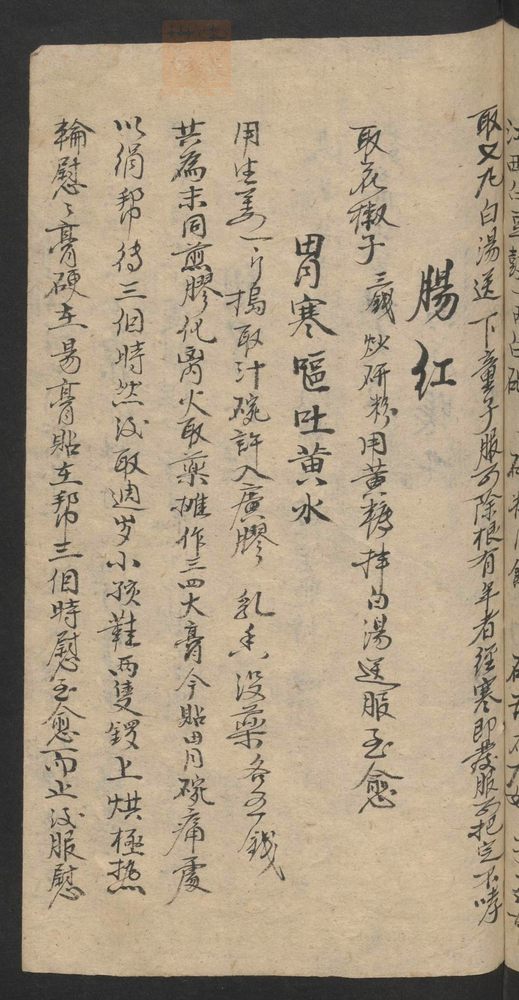 取又九白湯送下童子服可除根有年者經寒即發服可把定不哮
腸紅
取花椒子三錢炒研粉用黃糖拌白湯送服至愈
胃寒嘔吐黃水
用生姜一斤搗取汁碗許入廣膠 乳香沒藥各五錢
共為末同煎膠化离火取藥攤作三四大膏今貼胃碗痛處
以絹幇待三個時然後取週岁小孩鞋兩隻鍰上烘極熱
輪慰々膏硬在易膏貼在幇三個時慰至愈而止後服慰